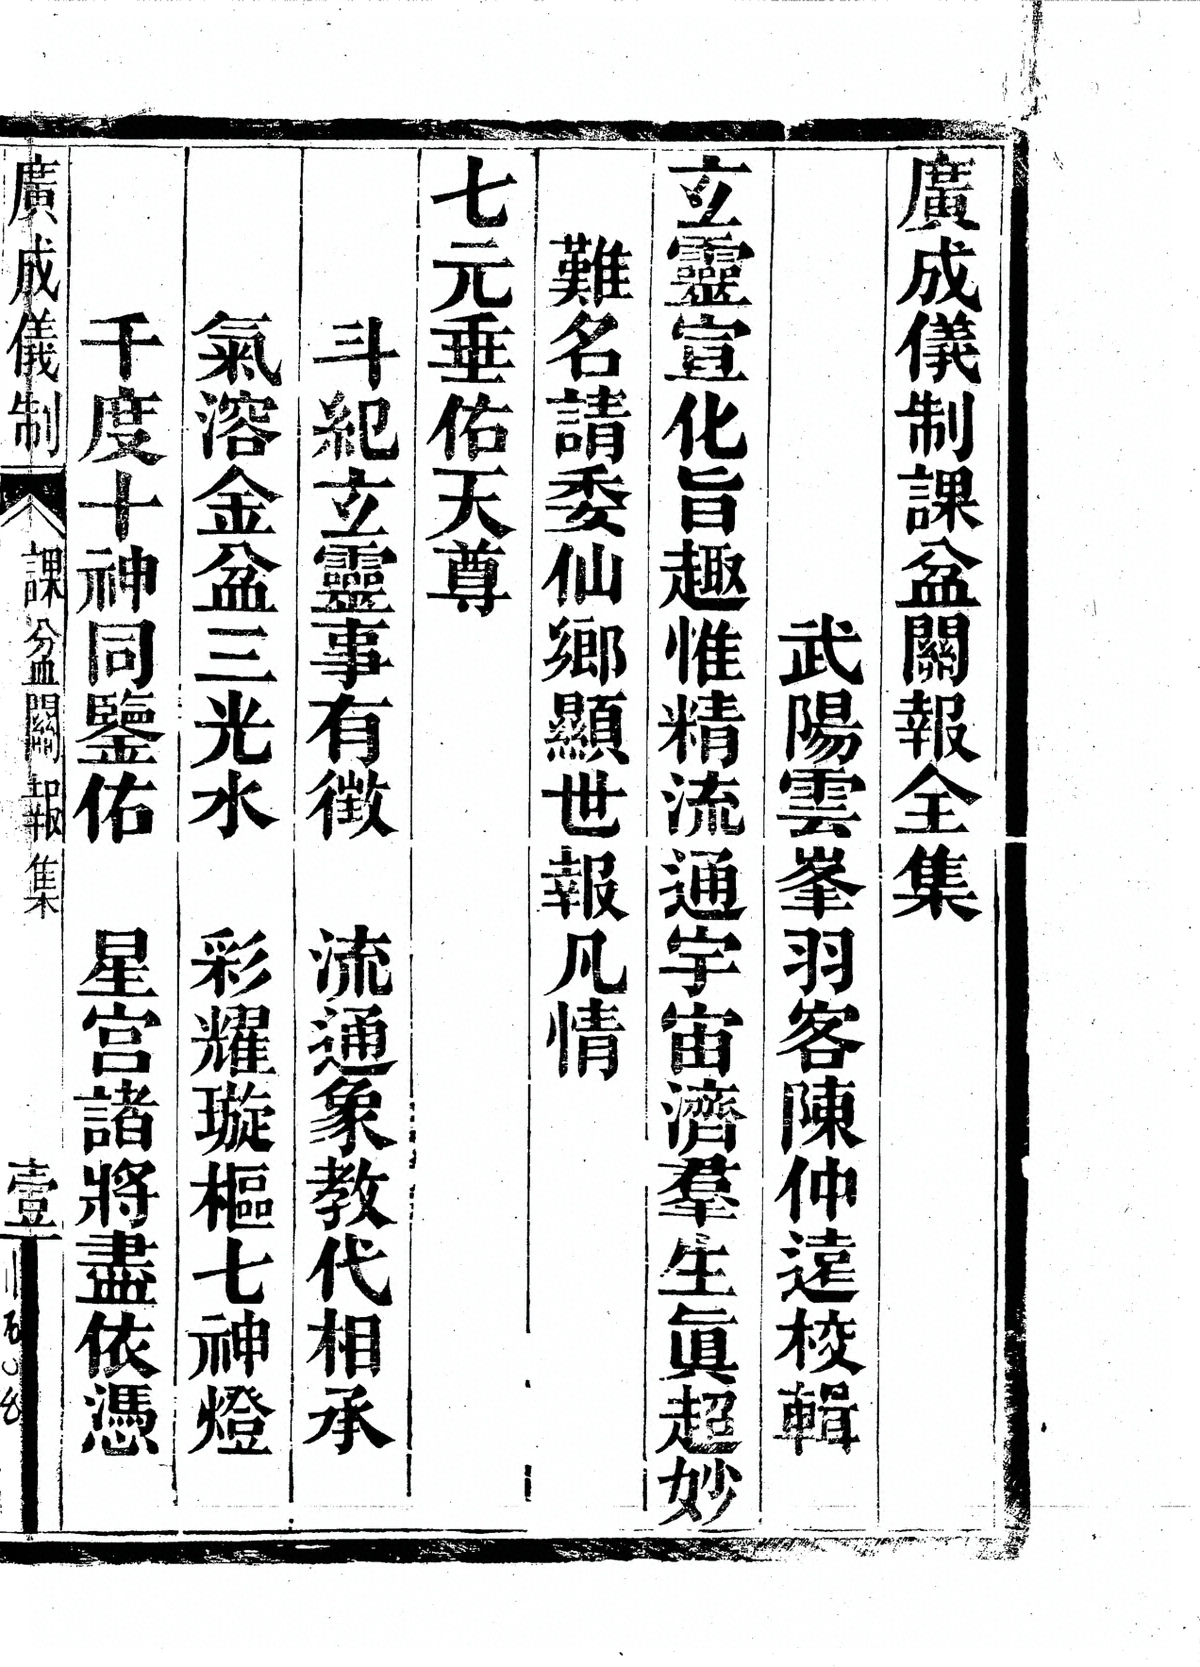 廣成儀制課盆關報全集
武陽雲峯羽客陳仲遠校輯
玄靈宣化旨趣惟精流通宇宙濟羣生眞超妙
難名請委仙鄉顯世報凡情
七元垂佑天尊
斗紀玄靈事有徵　流通象教代相承
氣溶金盆三光水　彩耀璇樞七神燈
千度十神同鑒佑　星宮諸將盡依憑
廣成儀制　課盆關報集　壹